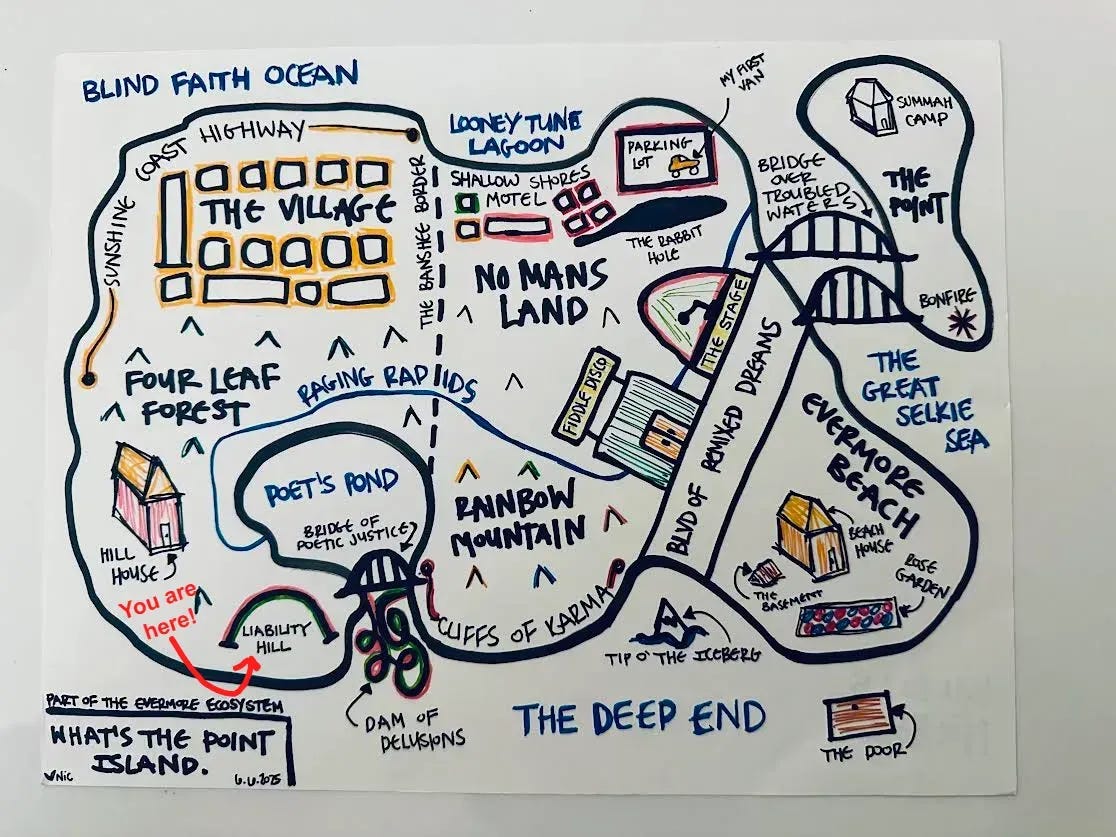 BLIND FAITH OCEAN
SUNSHINE COAST HIGHWAY
THE VILLAGE
THE BANSHEE BORDER
LOONEY TUNE
LAGOON
SHALLOW SHORES
MOTEL
PARKING
LOT
MY FIRST
VAN
THE RABBIT
HOLE
NO MANS
LAND
SUMMAH
CAMP
THE
POINT
BRIDGE
OVER
TROUBLED
WATERS
BONFIRE
THE
GREAT
SELKIE
SEA
FOUR LEAF
FOREST
RAGING RAPIDS
THE STAGE
FIDDLE DISCO
BLVD OF REMIXED DREAMS
EVERMORE
BEACH
POET'S POND
BRIDGE OF
POETIC JUSTICE
RAINBOW
MOUNTAIN
HILL
HOUSE
BEACH
HOUSE
THE
BASEMENT
ROSE
GARDEN
You are
here!
LIABILITY
HILL
CLIFFS OF KARMA
TIP O' THE ICEBERG
DAM OF
DELUSIONS
THE DEEP END
THE DOOR
PART OF THE EVERMORE ECOSYSTEM
WHAT'S THE POINT
ISLAND.
NIC 6.6.2025